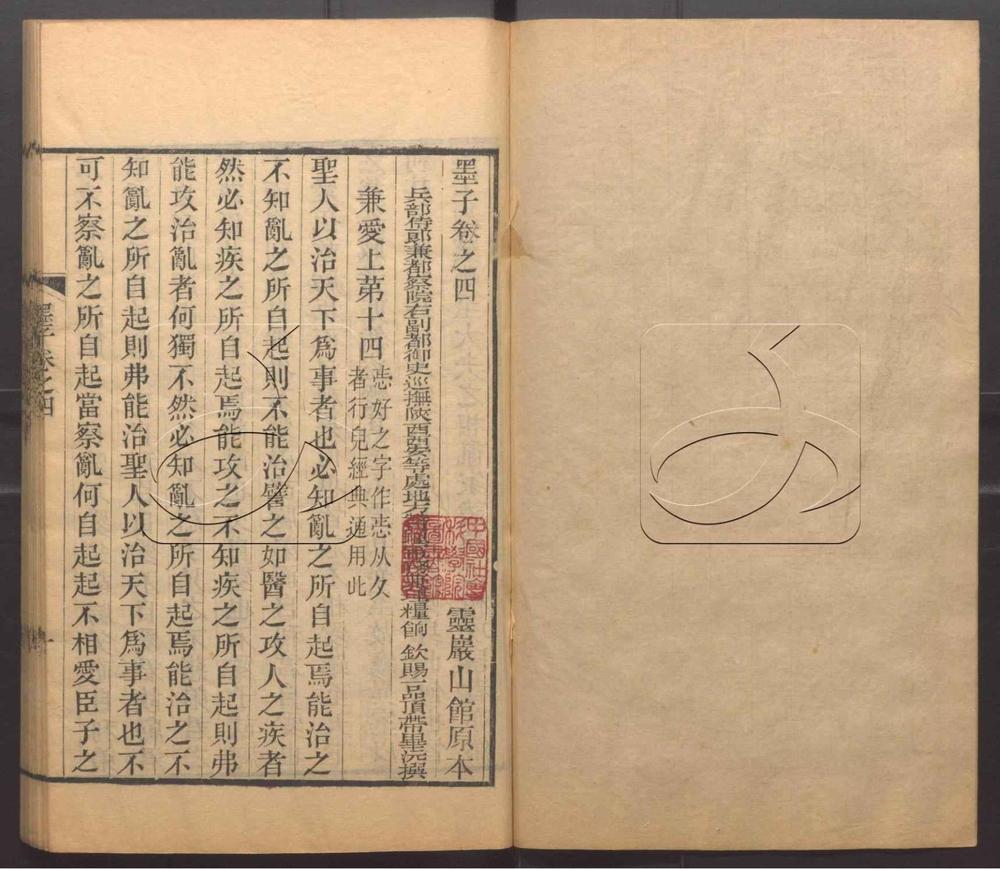 墨子卷之四
靈巖山館原本
兵部侍郎兼都察院右副都御史巡撫陝西西安等處地方
糧餉 欽賜一品頂帶畢沅撰
兼愛上第十四
㤅好之字作㤅从夂
者行皃經典通用此
聖人以治天下爲事者也必知亂之所自起焉能治之
不知亂之所自起則不能治譬之如醫之攻人之疾者
然必知疾之所自起焉能攻之不知疾之所自起則弗
能攻治亂者何獨不然必知亂之所自起焉能治之不
知亂之所自起則弗能治聖人以治天下爲事者也不
可不察亂之所自起當察亂何自起起不相愛臣子之
墨子卷之四
一